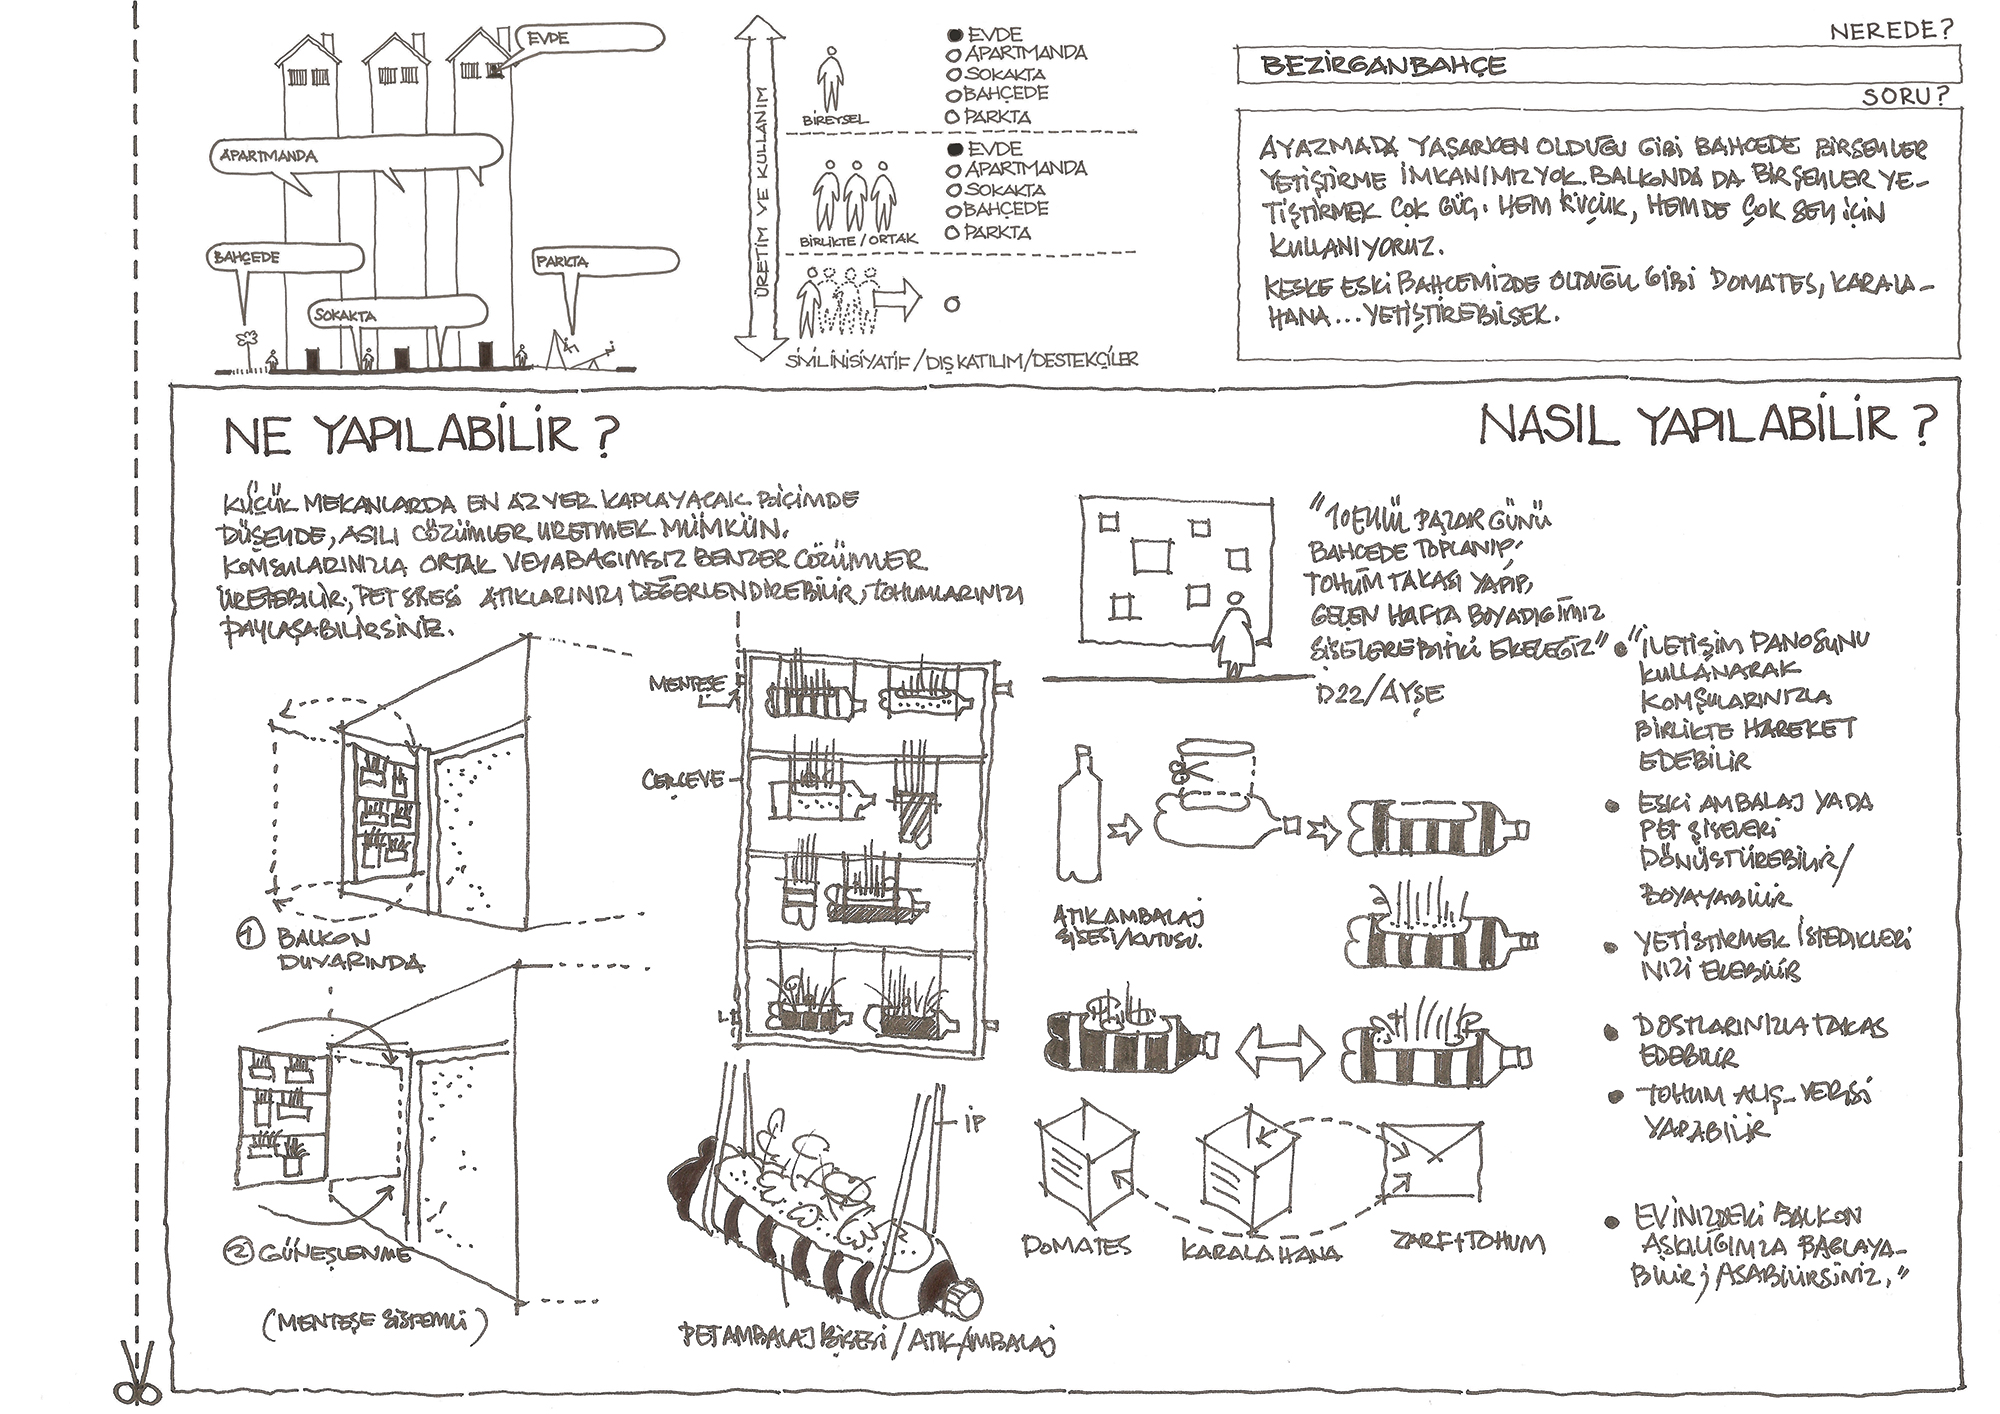 EVDE
APARTMANDA
BAHÇEDE
SOKAKTA
PARKTA
ÜRETİM VE KULLANIM
BİREYSEL
EVDE
APARTMANDA
SOKAKTA
BAHÇEDE
PARKTA
BİRLİKTE / ORTAK
EVDE
APARTMANDA
SOKAKTA
BAHÇEDE
PARKTA
SİVİL İNİSİYATİF / DIŞ KATILIM / DESTEKÇİLER
NEREDE?
BEZİRGANBAHÇE
SORU?
AYAZMADA YAŞARKEN OLDUĞU GİBİ BAHÇEDE BİRŞEYLER
YETİŞTİRME İMKANIMIZ YOK. BALKONDA DA BİR ŞEYLER YE-
TİŞTİRMEK ÇOK GÜÇ. HEM KÜÇÜK, HEM DE ÇOK ŞEY İÇİN
KULLANIYORUZ.
KEŞKE ESKİ BAHÇEMİZDE OLDUĞU GİBİ DOMATES, KARALA-
HANA... YETİŞTİREBİLSEK.
NE YAPILABİLİR ?
KÜÇÜK MEKANLARDA EN AZ YER KAPLAYACAK BİÇİMDE
DÜŞEYDE, ASILI ÇÖZÜMLER ÜRETMEK MÜMKÜN.
KOMŞULARINIZLA ORTAK VEYA BAGIMSIZ BENZER ÇÖZÜMLER
ÜRETEBİLİR, PET ŞİŞESİ ATIKLARINIZI DEĞERLENDİREBİLİR, TOHUMLARINIZI
PAYLAŞABİLİRSİNİZ.
① BALKON
DUVARINDA
② GÜNEŞLENME
(MENTEŞE SİSTEMLİ)
MENTEŞE
ÇERÇEVE
İP
PET AMBALAJ ŞİŞESİ / ATIK AMBALAJ
NASIL YAPILABİLİR ?
"10 EYLÜL PAZAR GÜNÜ
BAHÇEDE TOPLANIP,
TOHUM TAKASI YAPIP,
GEÇEN HAFTA BOYADIĞIMIZ
ŞİŞELERE BİTKİ EKECEĞİZ"
D22/AYŞE
ATIK AMBALAJ
ŞİŞESİ/KUTUSU.
DOMATES
KARALAHANA
ZARF+TOHUM
● "İLETİŞİM PANOSUNU
KULLANARAK
KOMŞULARINIZLA
BİRLİKTE HAREKET
EDEBİLİR
● ESKİ AMBALAJ YADA
PET ŞİŞELERİ
DÖNÜŞTÜREBİLİR/
BOYAYABİLİR
● YETİŞTİRMEK İSTEDİKLERİ
NİZİ EKEBİLİR
● DOSTLARINIZLA TAKAS
EDEBİLİR
● TOHUM ALIŞ-VERİŞİ
YAPABİLİR
● EVİNİZDEKİ BALKON
ASKILIĞINIZA BAĞLAYA-
BİLİR, ASABİLİRSİNİZ."